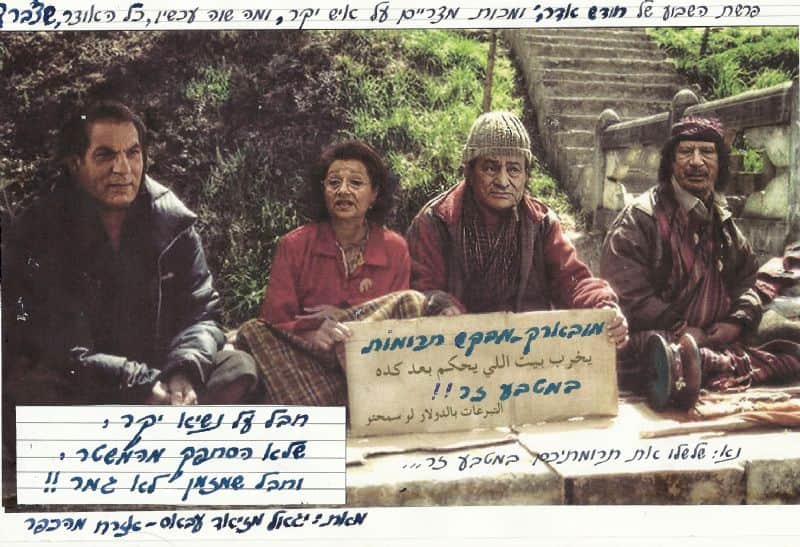 פרשת השבוע של חודש אדר, ומכות מצריים על איש יקר, ומה שווה עכשיו, כל האוצר,
מובארק-מבקש תרומות
يخرب بيت اللي يحكم بعد كده
במטבע זר!!
التبرعات بالدولار لو سمحتو
חבל על נשיא יקר,
שלא הסתפק מהמשטר,
וחבל שמזמן לא גמר!!
נא: שלשלו את תרומתיכם במטבע זר...
מאת: יגאל מזיאד עבאס-אזרח מהכפר